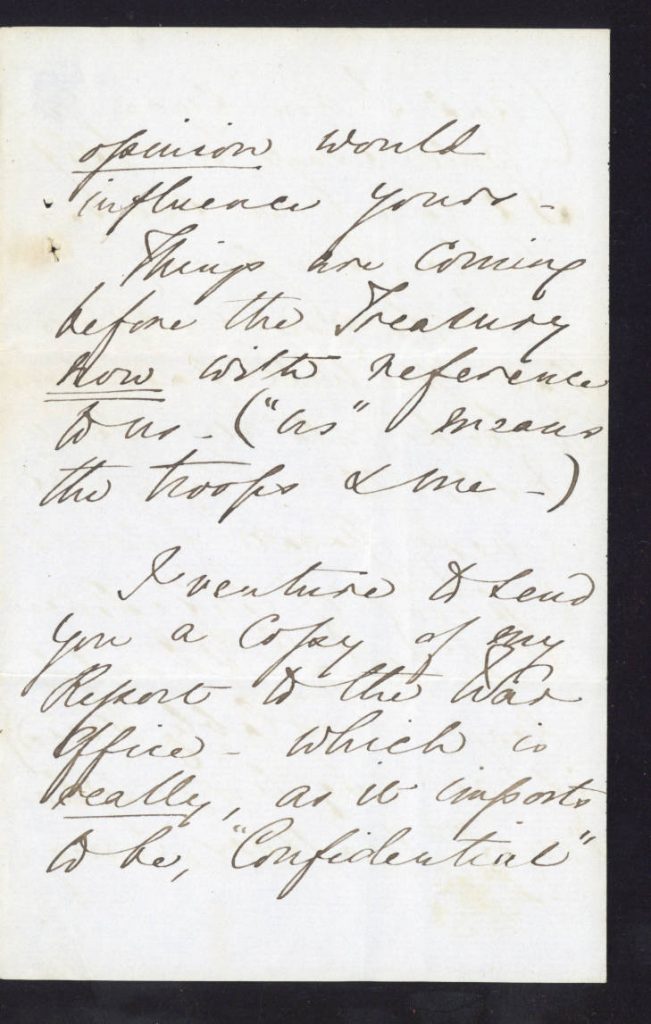 opinion would
influence yours -
Things are coming
before the Treasury
now with reference
to us - ("us" means
the troops & me -)
I venture to send
you a Copy of my
Report to the War
Office - which is
really, as it imports
to be, "Confidential"